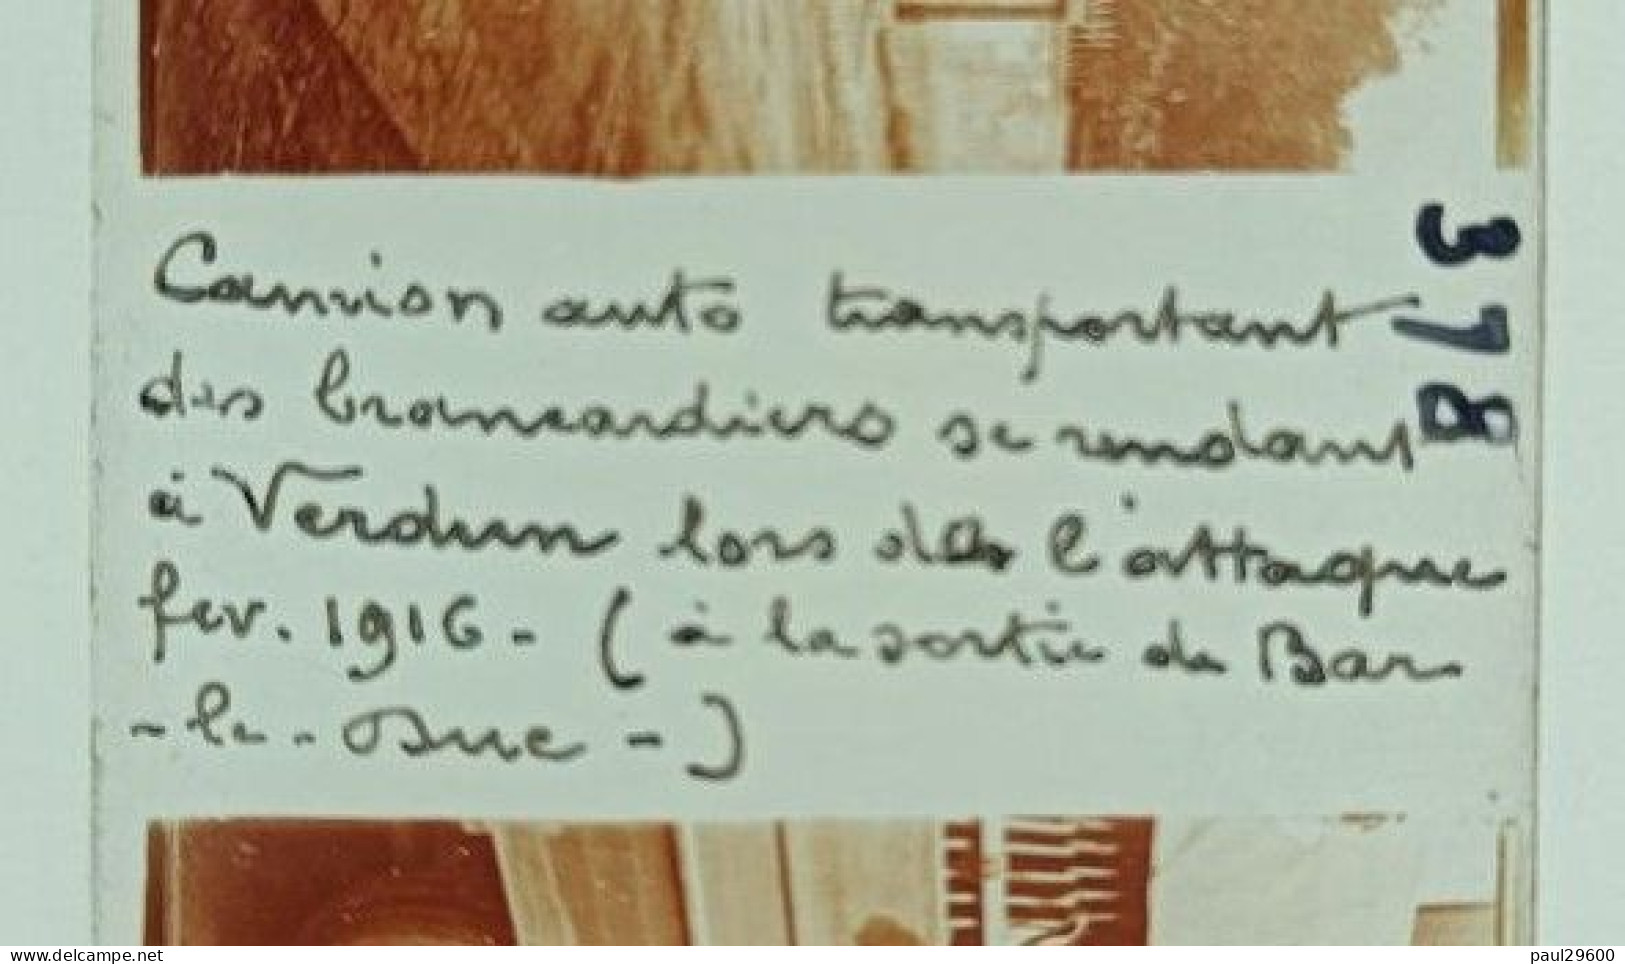 Camion auto transportant
des brancardiers se rendant
à Verdun lors de l'attaque
fev. 1916. (à la sortie de Bar
-le-Duc-)
378
www.delcampe.net
paul29600